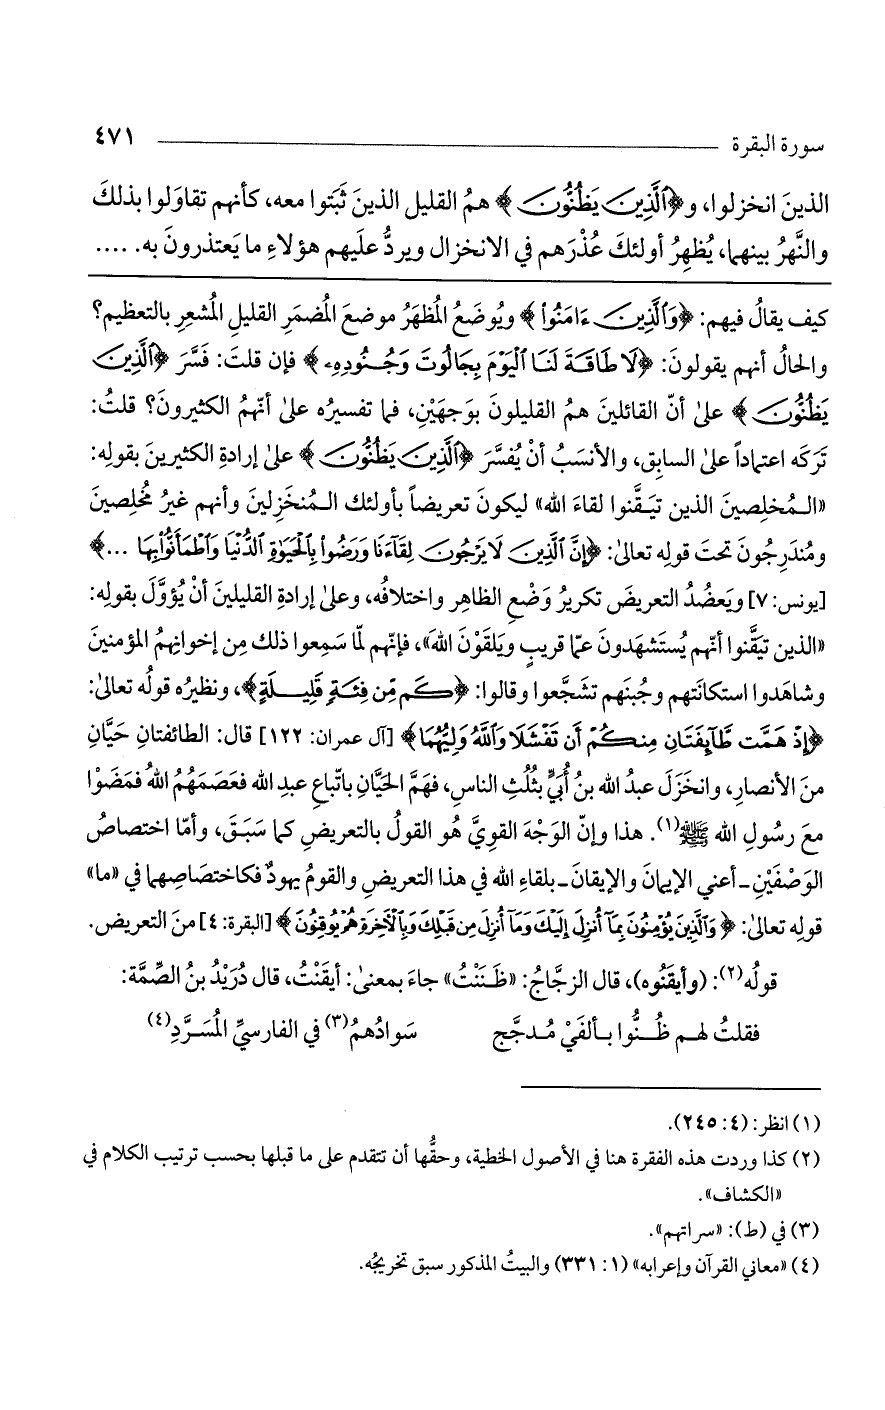 سورة البقرة ٤٧١
الذينَ انخزلوا، و﴿الَّذِينَ يَظُنُّونَ﴾ همُ القليل الذينَ ثَبَتوا معه، كأنهم تقاوَلوا بذلكَ
والنَّهرُ بينهما، يُظهِرُ أولئكَ عُذْرَهم في الانخزال ويردُّ عليهم هؤلاءِ ما يَعتذرونَ به. ....
كيف يقالُ فيهم: ﴿وَالَّذِينَ ءَامَنُوا﴾ ويُوضَعُ المُظهَرُ موضعَ المُضمَرِ القليلِ المُشعِرِ بالتعظيم؟
والحالُ أنهم يقولونَ: ﴿لَا طَاقَةَ لَنَا الْيَوْمَ بِجَالُوتَ وَجُنُودِهِ﴾ فإن قلتَ: فَسَّرَ ﴿الَّذِينَ
يَظُنُّونَ﴾ علىٰ أنّ القائلينَ همُ القليلونَ بوَجهَيْنِ، فما تفسيرُه علىٰ أنّهمُ الكثيرونَ؟ قلتُ:
تَرَكَه اعتماداً علىٰ السابِق، والأنسَبُ أنْ يُفسَّرَ ﴿الَّذِينَ يَظُنُّونَ﴾ علىٰ إرادةِ الكثيرينَ بقولِه:
«المُخلِصينَ الذين تيَقَّنوا لقاءَ الله» ليكونَ تعريضاً بأولئك المُنخَزِلينَ وأنهم غيرُ مُخلِصينَ
ومُندَرِجُونَ تحتَ قولِه تعالىٰ: ﴿إِنَّ الَّذِينَ لَا يَرْجُونَ لِقَاءَنَا وَرَضُوا بِالْحَيَوٰةِ الدُّنْيَا وَاطْمَأَنُّوا بِهَا ...﴾
[يونس: ٧] ويَعضُدُ التعريضَ تكريرُ وَضْعِ الظاهِر واختلافُه، وعلىٰ إرادةِ القليلينَ أنْ يُؤوَّلَ بقولِه:
«الذين تيَقَّنوا أنّهم يُستَشهَدونَ عمّا قريبٍ ويَلقَوْنَ اللهَ»، فإنّهم لمّا سَمِعوا ذلك مِن إخوانِهمُ المؤمنينَ
وشاهَدوا استكانَتهم وجُبنَهم تشجَّعوا وقالوا: ﴿كَم مِّن فِئَةٍ قَلِيلَةٍ﴾، ونظيرُه قولُه تعالىٰ:
﴿إِذْ هَمَّت طَّائِفَتَانِ مِنكُمْ أَن تَفْشَلَا وَاللَّهُ وَلِيُّهُمَا﴾ [آل عمران: ١٢٢] قال: الطائفتانِ حَيَّانِ
منَ الأنصارِ، وانخَزَلَ عبدُ الله بنُ أُبيٍّ بثُلُثِ الناسِ، فهَمَّ الحَيَّانِ باتّباعِ عبدِ الله فعَصَمَهُمُ اللهُ فمَضَوْا
معَ رسُولِ الله ﷺ(١). هذا وإنّ الوَجْهَ القويَّ هُو القولُ بالتعريضِ كما سَبَقَ، وأمّا اختصاصُ
الوَصْفَيْنِ ـ أعني الإيمانَ والإيقانَ ـ بلقاءِ الله في هذا التعريضِ والقومُ يهودٌ فكاختصَاصِهما في «ما»
قولِه تعالىٰ: ﴿وَالَّذِينَ يُؤْمِنُونَ بِمَا أُنزِلَ إِلَيْكَ وَمَا أُنزِلَ مِن قَبْلِكَ وَبِالْآخِرَةِ هُمْ يُوقِنُونَ﴾ [البقرة: ٤] منَ التعريض.
قولُه(٢): (وأيقَنُوه)، قال الزجَّاجُ: «ظَنَنْتُ» جاءَ بمعنىٰ: أيقَنْتُ، قال دُرَيْدُ بنُ الصِّمَّة:
فقلتُ لهم ظُنُّوا بألفَيْ مُدجَّج سَوادُهمُ(٣) في الفارسيِّ المُسَرَّدِ(٤)
(١) انظر: (٤: ٢٤٥).
(٢) كذا وردت هذه الفقرة هنا في الأصول الخطية، وحقُّها أن تتقدم على ما قبلها بحسب ترتيب الكلام في
«الكشاف».
(٣) في (ط): «سراتهم».
(٤) «معاني القرآن وإعرابه» (١: ٣٣١) والبيتُ المذكور سبق تخريجُه.